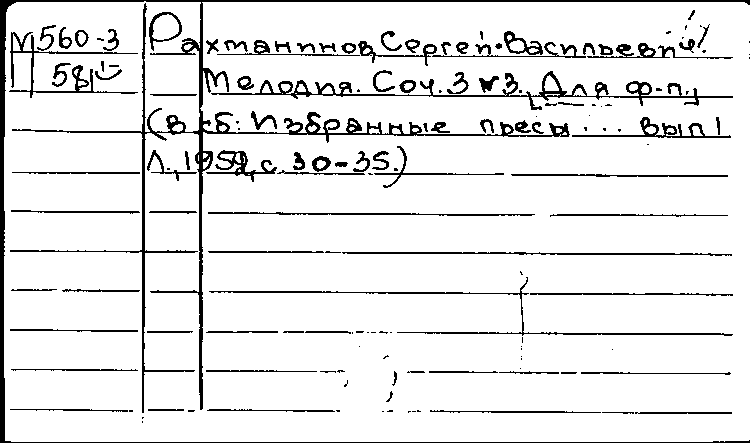 М560-3
581
Рахманинов, Сергей Васильевич.
Мелодия. Соч. 3 №3. [Для ф-п.]
(В сб: Избранные пьесы... вып 1
Л., 1959, с. 30-35.)